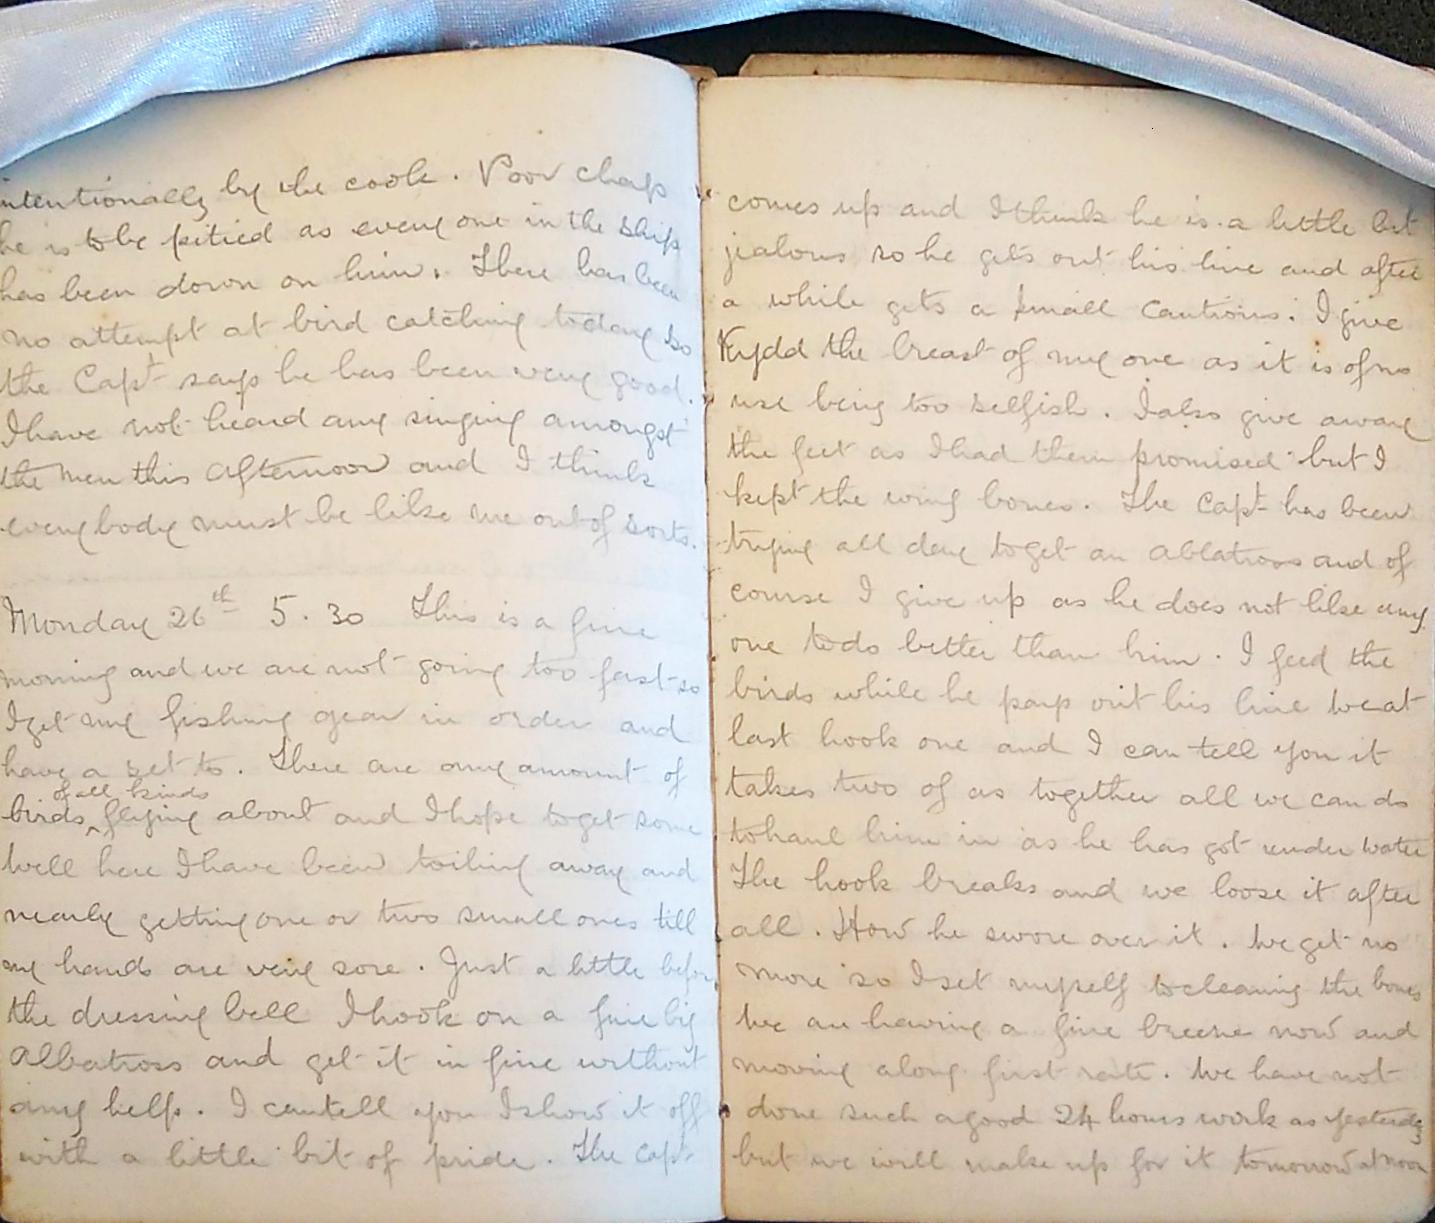 intentionally by the cook. Poor chap
he is to be pitied as every one in the ship
has been down on him. There has been
no attempt at bird catching today so
the Capt says he has been very good.
I have not heard any singing amongst
the men this afternoon and I think
everybody must be like me out of sorts.
Monday 26th 5.30 This is a fine
morning and we are not going too fast so
I get my fishing gear in order and
have a set to. There are any amount of
of all kinds
birds ^ flying about and I hope to get some
Well here I have been toiling away and
nearly getting one or two small ones till
my hands are very sore. Just a little before
the dressing bell I hook on a fine big
Albatross and get it in fine without
any help. I can tell you I show it off
with a little bit of pride. The Capt
comes up and I think he is a little bit
jealous so he gets out his line and after
a while gets a small cautious. I give
Kydd the breast of my one as it is of no
use being too selfish. I also give away
the feet as I had them promised but I
kept the wing bones. The Capt has been
trying all day to get an Ablatross and of
course I give up as he does not like any
one to do better than him. I feed the
birds while he pays out his line we at
last hook one and I can tell you it
takes two of us together all we can do
to haul him in as he has got under water
The hook breaks and we loose it after
all. How he swore over it. We get no
more so I set myself to cleaning the bones
We are having a fine breeze now and
moving along first rate. We have not
done such a good 24 hours work as yesterday
but we will make up for it tomorrow at noon